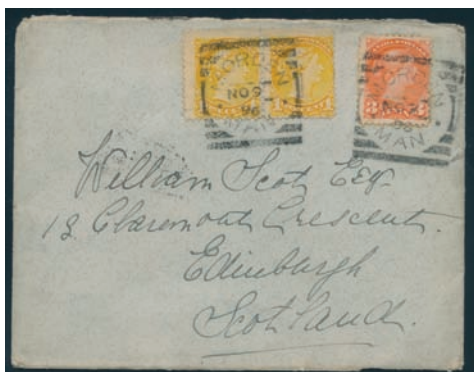 MORDEN
NO 9
96
MAN
1
MORDEN
NO
96
MAN
3
William Scot Esq.
13 Claremont Crescent.
Edinburgh
Scotland.